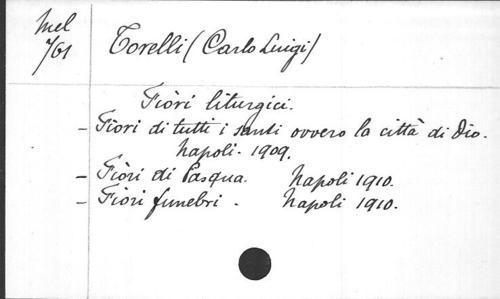 Mel
7/61
Torelli (Carlo Luigi)
Fiori liturgici.
- Fiori di tutti i santi ovvero la città di Dio.
Napoli - 1909.
- Fiori di Pasqua. Napoli 1910.
- Fiori funebri. Napoli 1910.